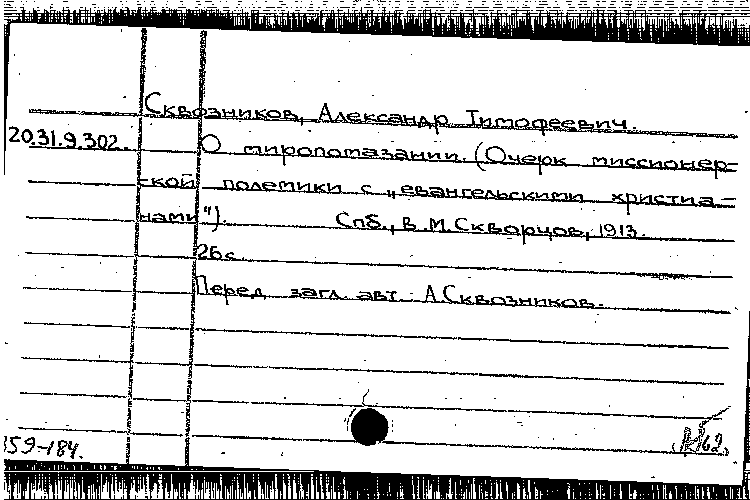 Сквозников, Александр Тимофеевич.
20.31.9.302. О миропомазании. (Очерк миссионер-
-ской полемики с „евангельскими христиа-
нами").      Спб., В.М.Скворцов, 1913.
26с.
Перед загл. авт. А.Сквозников.
159-184.